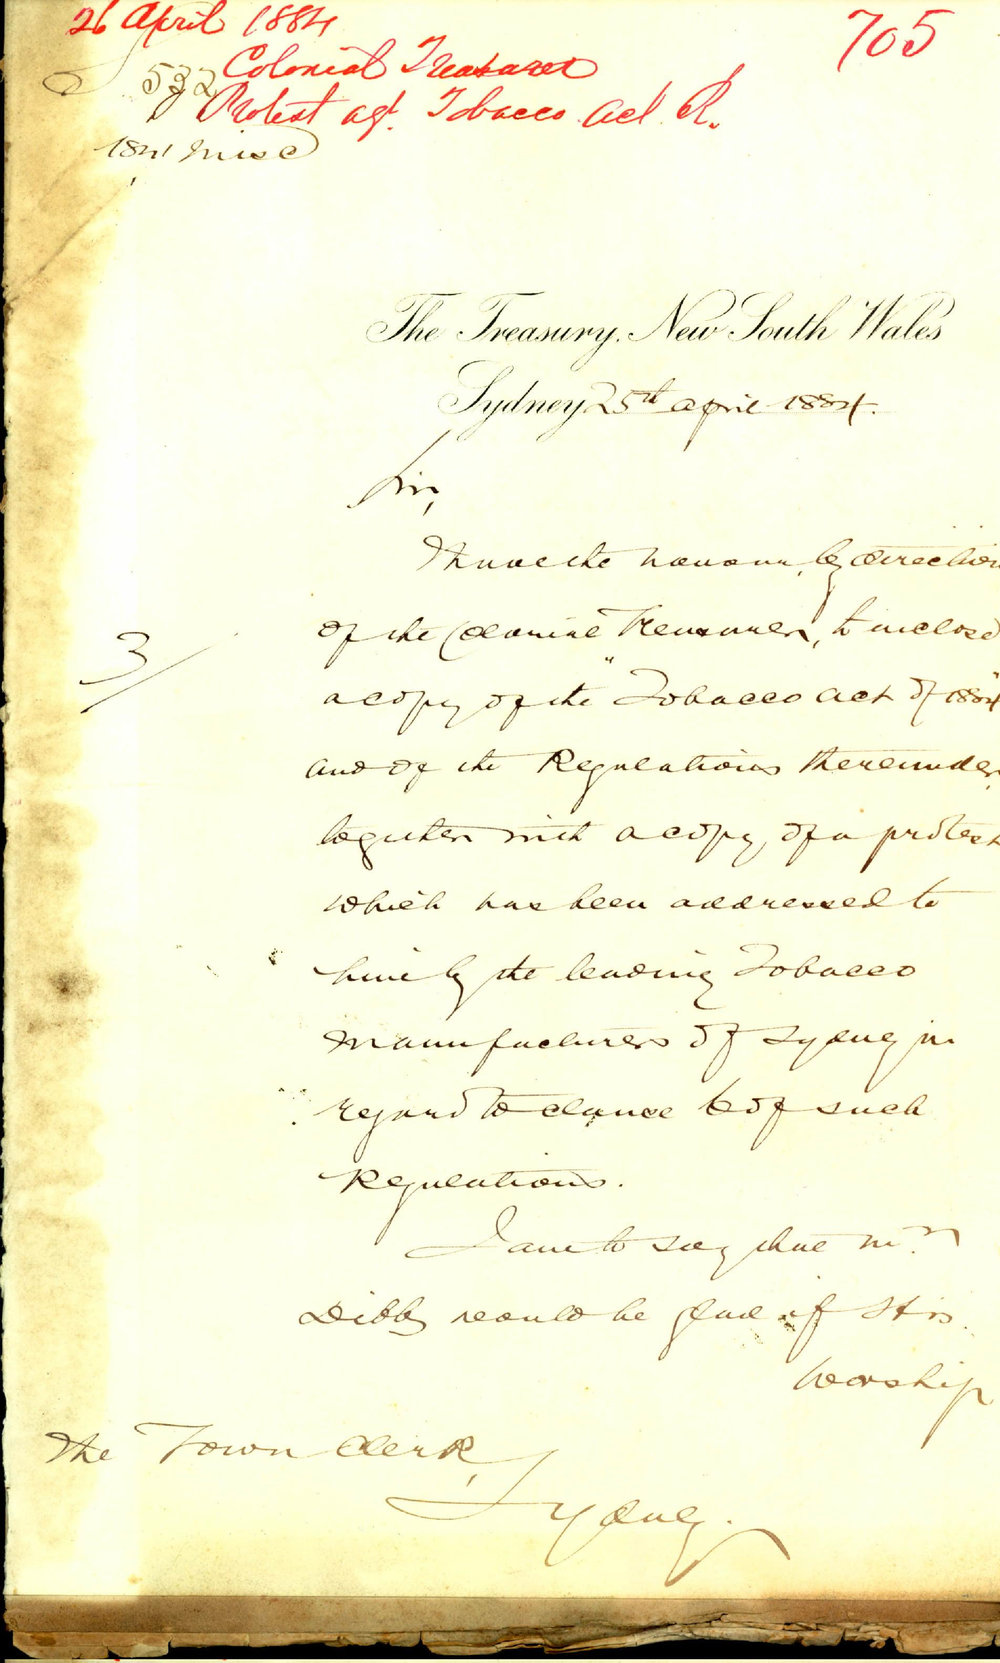 26 April 1884
705
Colonial Treasurer
532
Protest agt. Tobacco Act R.
1841 Misc
The Treasury, New South Wales
Sydney 25th April 1884.
Sir,
I have the honour, by direction
of the Colonial Treasurer, to inclose
3/
a copy of the "Tobacco Act of 1884"
and of the Regulations thereunder
together with a copy of a protest
which has been addressed to
him by the leading Tobacco
Manufacturers of Sydney in
regard to clause 6 of such
Regulations.
I am to say that Mr.
Dibbs would be glad if His
Worship
The Town Clerk,
Sydney.